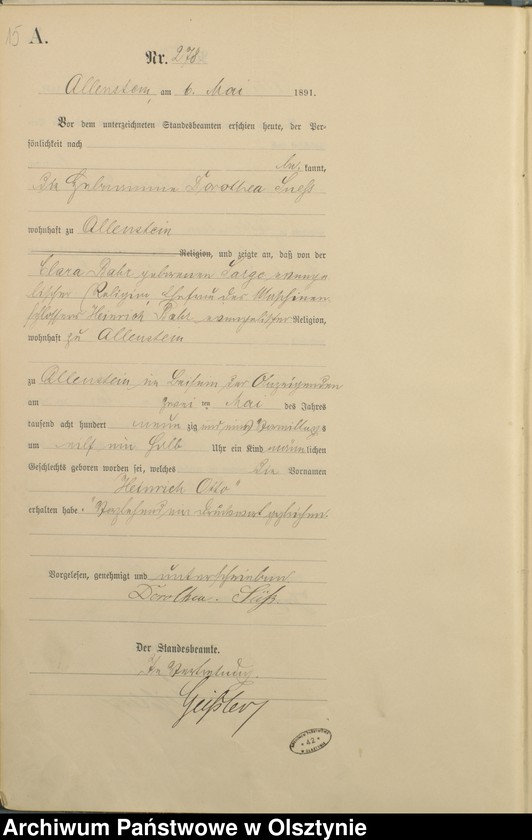 15 A.
Nr. 278
Allenstein, am 6. Mai 1891.
Vor dem unterzeichneten Standesbeamten erschien heute, der Per-
sönlichkeit nach
be kannt,
die Hebamme Dorothea Suess
wohnhaft zu Allenstein
Religion, und zeigte an, daß von der
Clara Rahr geborenen Sargo, evange-
lischer Religion, Ehefrau des Maschinen-
schlossers Heinrich Rahr, evangelischer Religion,
wohnhaft zu Allenstein
zu Allenstein im Beisein der Anzeigenden
am zwei ten Mai des Jahres
tausend acht hundert neun zig und eins Vormittags
um elf ein halb Uhr ein Kind männlichen
Geschlechts geboren worden sei, welches die Vornamen
Heinrich Otto
erhalten habe. Vorstehend ein Druckwort gestrichen.
Vorgelesen, genehmigt und unterschrieben
Dorothea Süß
Der Standesbeamte.
In Vertretung.
Geißler
42
Archiwum Państwowe w Olsztynie